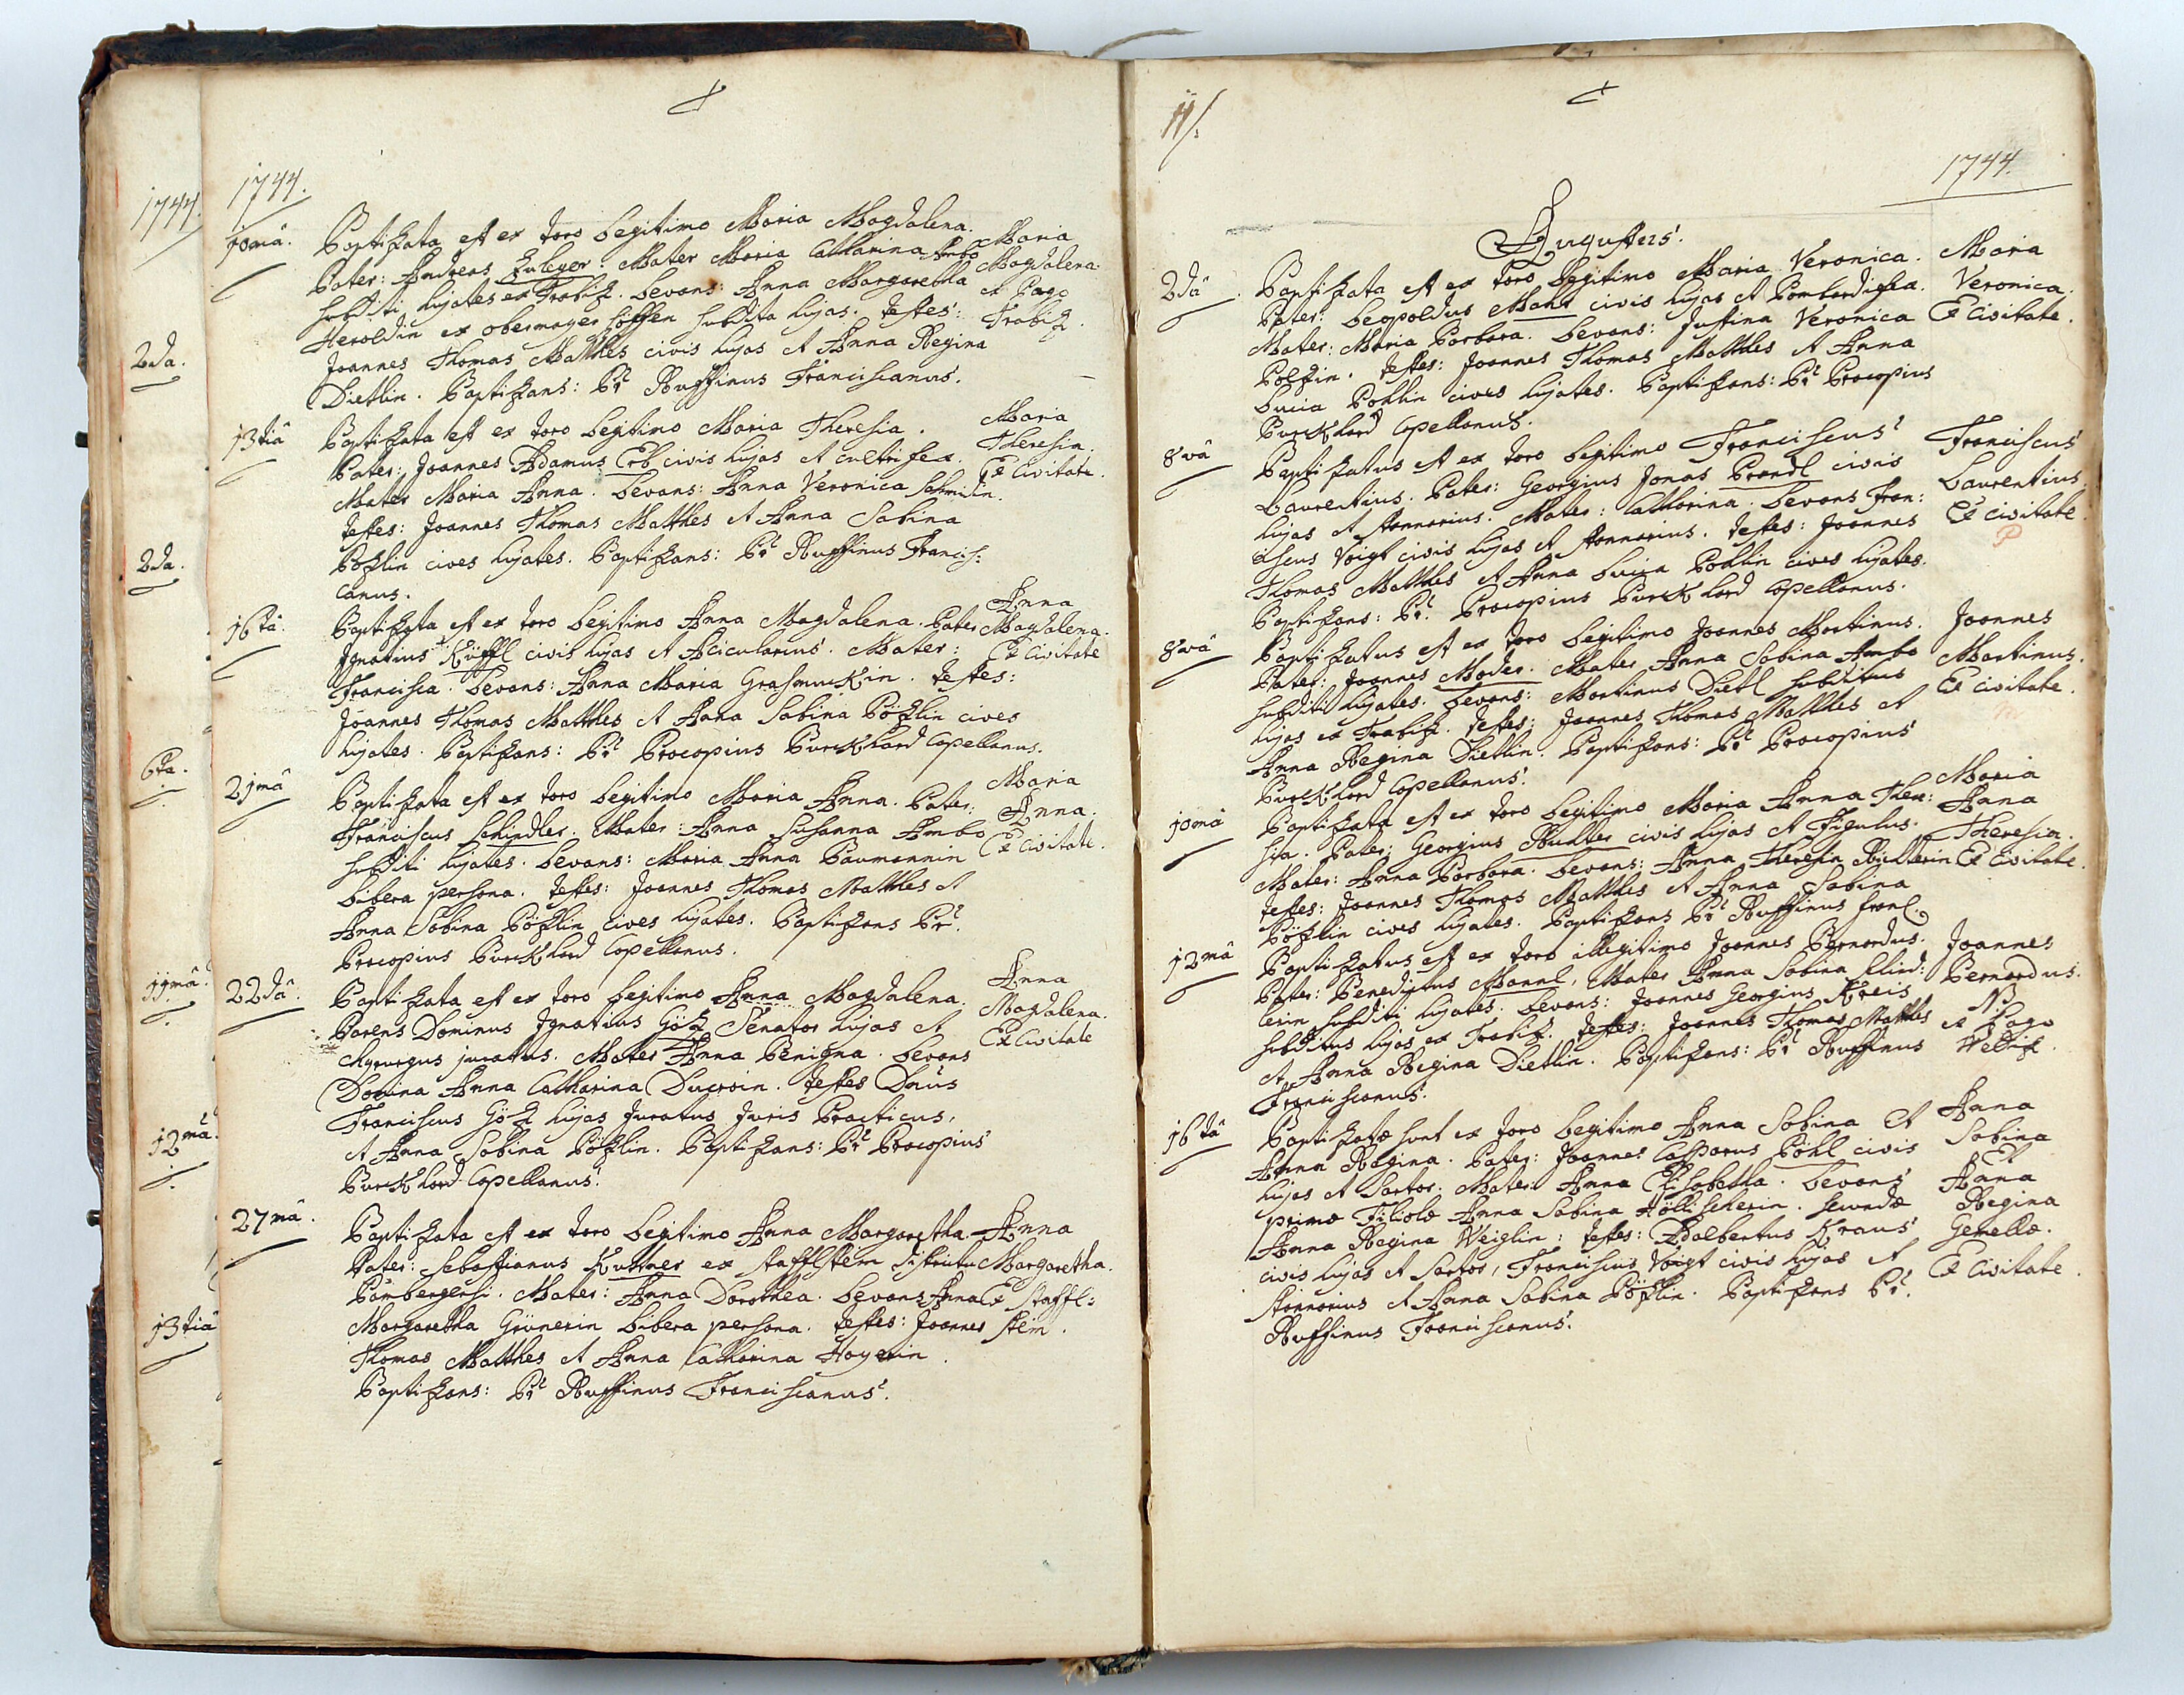 1744.
2da.
2da.
6ta.
11mâ
12mâ
13tiâ
1744.
10mâ. Baptizata est ex toro Legitimo Maria Magdalena. Maria
Pater: Andreas Zuleger Mater Maria Catharina Ambo Magdalena
subditi hujates ex Trabiz. Levans: Anna Margaretha ex Pago
Heroldin ex obermayer höffen subdita hujas. Testes: Trabiz.
Joannes Thomas Matthes civis hujas et Anna Regina
Dietlin. Baptizans: Pr Ruffinus Franciscanus.
13tiâ Baptizata est ex toro Legitimo Maria Theresia. Maria
Pater: Joannes Adamus Erb civis hujas et cultrifex. Theresia.
Mater Maria Anna. Levans: Anna Veronica Schmidin. Ex Civitate.
Testes: Joannes Thomas Matthes et Anna Sabina
Pözlin cives hujates. Baptizans: Pr Ruffinus Francis:
canus.
16tâ. Baptizata est ex toro Legitimo Anna Magdalena. Pater Anna Magdalena.
Ignatius Küffl civis hujas et Acicularius. Mater: Ex Civitate
Francisca. Levans: Anna Maria Grasmuckin. Testes:
Joannes Thomas Matthes et Anna Sabina Pözlin cives
hujates. Baptizans: Pr Procopius Burckhard Capellanus.
21mâ Baptizata est ex toro Legitimo Maria Anna. Pater: Maria
Franciscus Schindler. Mater: Anna Susanna Ambo Anna.
subditi hujates. Levans: Maria Anna Baumannin Ex Civitate.
Libera persona. Testes: Joannes Thomas Matthes et
Anna Sabina Pözlin cives hujates. Baptizans Pr.
Procopius Burckhard Capellanus.
22dâ. Baptizata est ex toro Legitimo Anna Magdalena. Anna
Parens Dominus Ignatius Göz Senator hujas et Magdalena.
Chyrurgus juratus. Mater Anna Benigna. Levans Ex Civitate
Domina Anna Catharina Ducroin. Testes Dnus
Franciscus Göz hujas Juratus Juris Practicus,
et Anna Sabina Pözlin. Baptizans: Pr Procopius
Burckhard Capellanus.
27mâ. Baptizata est ex toro Legitimo Anna Margaretha. Anna
Pater: Sebastianus Kuttner ex stafflstein districtu Margaretha.
Bambergensi. Mater: Anna Dorothea. Levans Anna Ex Staffl:
Margaretha Grünerin Libera persona. Testes: Joannes stein.
Thomas Matthes et Anna Catharina Hayerin.
Baptizans: Pr Ruffinus Franciscanus.
11/:
1744.
Augustus.
2dâ. Baptizata est ex toro Legitimo Maria Veronica. Maria
Pater: Leopoldus Mann civis hujas et Bombardista. Veronica.
Mater: Maria Barbara. Levans: Justina Veronica Ex Civitate.
Polzin. Testes: Joannes Thomas Matthes et Anna
Lucia Pöhlin cives hujates. Baptizans: Pr Procopius
Burckhard Capellanus.
8vâ Baptizatus est ex toro Legitimo Franciscus Franciscus
Laurentius. Pater: Georgius Jonas Brandl civis Laurentius
hujas et stannarius. Mater: Catharina. Levans Fran: Ex civitate
ciscus Voigt civis hujas et stannarius. Testes: Joannes
Thomas Matthes et Anna Lucia Pöhlin cives hujates.
Baptizans: Pr. Procopius Burckhard Capellanus.
8vâ Baptizatus est ex toro Legitimo Joannes Martinus. Joannes
Pater: Joannes Moder. Mater Anna Sabina Ambo Martinus.
subditi hujates. Levans: Martinus Dietl subditus Ex civitate.
hujas ex Trabiz. Testes: Joannes Thomas Matthes et
Anna Regina Dietlin. Baptizans: Pr Procopius
Burckhard Capellanus.
10mâ Baptizata est ex toro Legitimo Maria Anna There: Maria
sia. Pater: Georgius Buchler civis hujas et Figulus. Anna
Mater: Anna Barbara. Levans: Anna Theresia Büchlerin Theresia.
Testes: Joannes Thomas Matthes et Anna Sabina Ex Civitate.
Pözlin cives hujates. Baptizans Pr Ruffinus Franc.
12mâ Baptizatus est ex toro illegitimo Joannes Bernardus. Joannes
Pater: Benedictus Mannl, Mater Anna Sabina Bernardus.
lerin subditi hujates. Levans: Joannes Georgius Kreis N:
subditus hujas ex Trabiz. Testes: Joannes Thomas Matthes ex Pago
et Anna Regina Dietlin. Baptizans: Pr Ruffinus Weliz.
Franciscanus.
16tâ Baptizatæ sunt ex toro Legitimo Anna Sabina Et Anna
Anna Regina. Pater: Joannes Casparus Pöhl civis Sabina
hujas et Sartor. Mater: Anna Elisabetha. Levans Et
primæ Filiolæ Anna Sabina Höllischerin. secundæ Anna
Anna Regina Weiglin: Testes: Adalbertus Kraus Regina
civis hujas et Sartor, Franciscus Voigt civis hujas et Gemellæ.
stannarius et Anna Sabina Pözlin. Baptizans Pr. Ex Civitate.
Ruffinus Franciscanus.